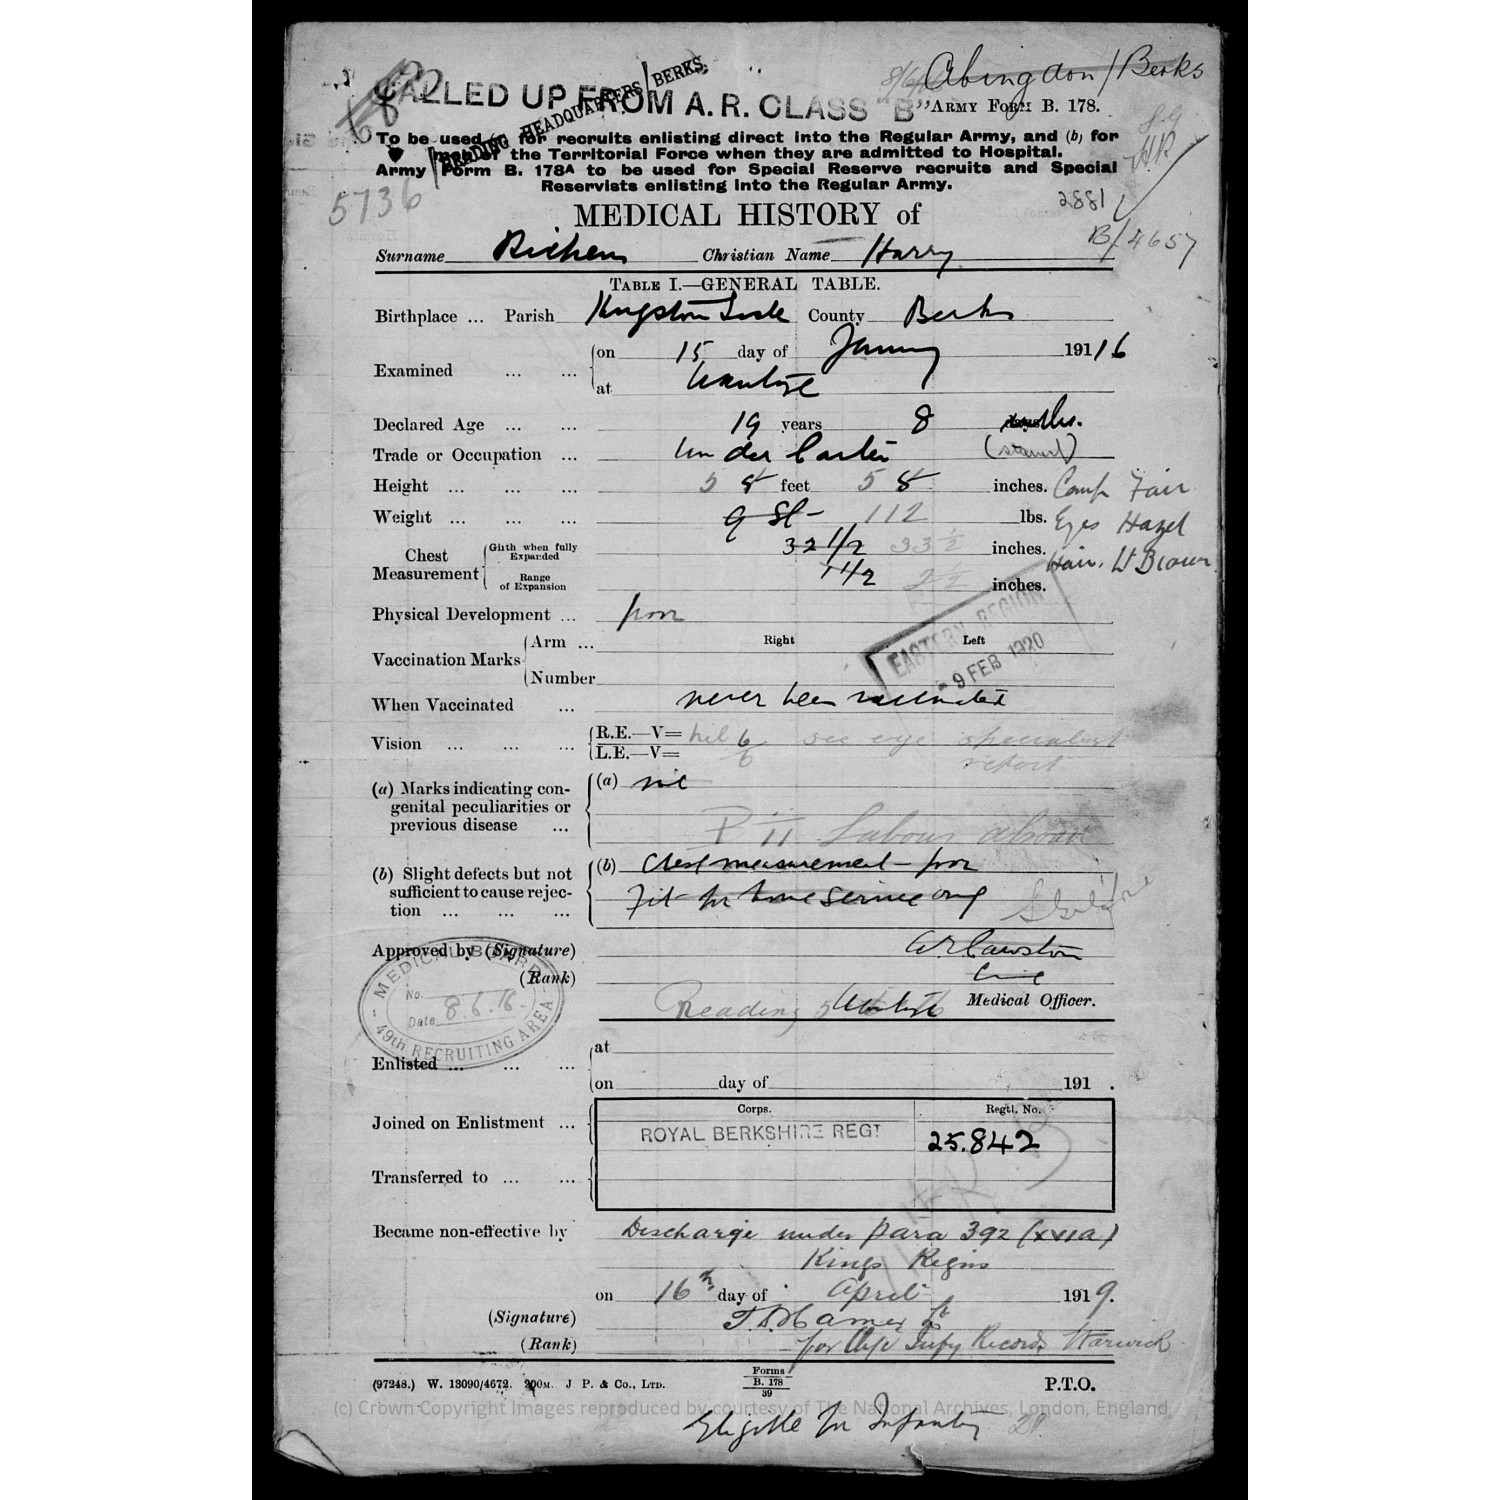 Abingdon / Berks
CALLED UP FROM A. R. CLASS "B"
READING HEADQUARTERS / BERKS.
ARMY FORM B. 178.
To be used for recruits enlisting direct into the Regular Army, and (b) for
the Territorial Force when they are admitted to Hospital.
Army Form B. 178A to be used for Special Reserve recruits and Special
Reservists enlisting into the Regular Army.
5736
2881
MEDICAL HISTORY of
B/4657
Surname Christian Name Harry
TABLE I.—GENERAL TABLE.
Birthplace ... Parish Kingston Lisle County Berks
Examined ... ... on 15 day of January 191 16
at Wantage
Declared Age ... ... 19 years 8 mths.
Trade or Occupation ... Under Carter
Height ... ... ... 5 feet 5 inches. Comp Fair
Weight ... ... ... 9 St- 112 lbs. Eyes Hazel
Chest Measurement Girth when fully Expanded 32 1/2 33 1/2 inches. Hair. Lt Brown
Range of Expansion 1 1/2 2 1/2 inches.
Physical Development ... poor
EASTERN REGION
- 9 FEB 1920
Vaccination Marks Arm ... Right Left
Number
When Vaccinated ... never been vaccinated
Vision ... ... ... R.E.—V= 6/6 see eye specialist
L.E.—V= report
(a) Marks indicating congenital peculiarities or previous disease ... (a) nil
Labour abroad
(b) Slight defects but not sufficient to cause rejection ... ... ... (b) Chest measurement - poor
Fit for home service only
Approved by (Signature) Cawston
(Rank)
Reading Wantage Medical Officer.
MEDICAL BOARD
No.
Date 8.6.16.
49th RECRUITING AREA
Enlisted ... ... ... at
on day of 191 .
Corps. Regtl. No.
Joined on Enlistment ... ROYAL BERKSHIRE REGT 25.842
Transferred to ... ...
Became non-effective by Discharge under para 392 (XVIa)
Kings Regns
on 16th day of April 1919.
(Signature) Hamer Lt
(Rank) for Infy Records Warwick
(97248.) W. 13090/4672. 200M. J P. & Co., LTD. Forms B. 178 39 P.T.O.
(c) Crown Copyright Images reproduced by courtesy of The National Archives, London, England
Eligible for Infantry